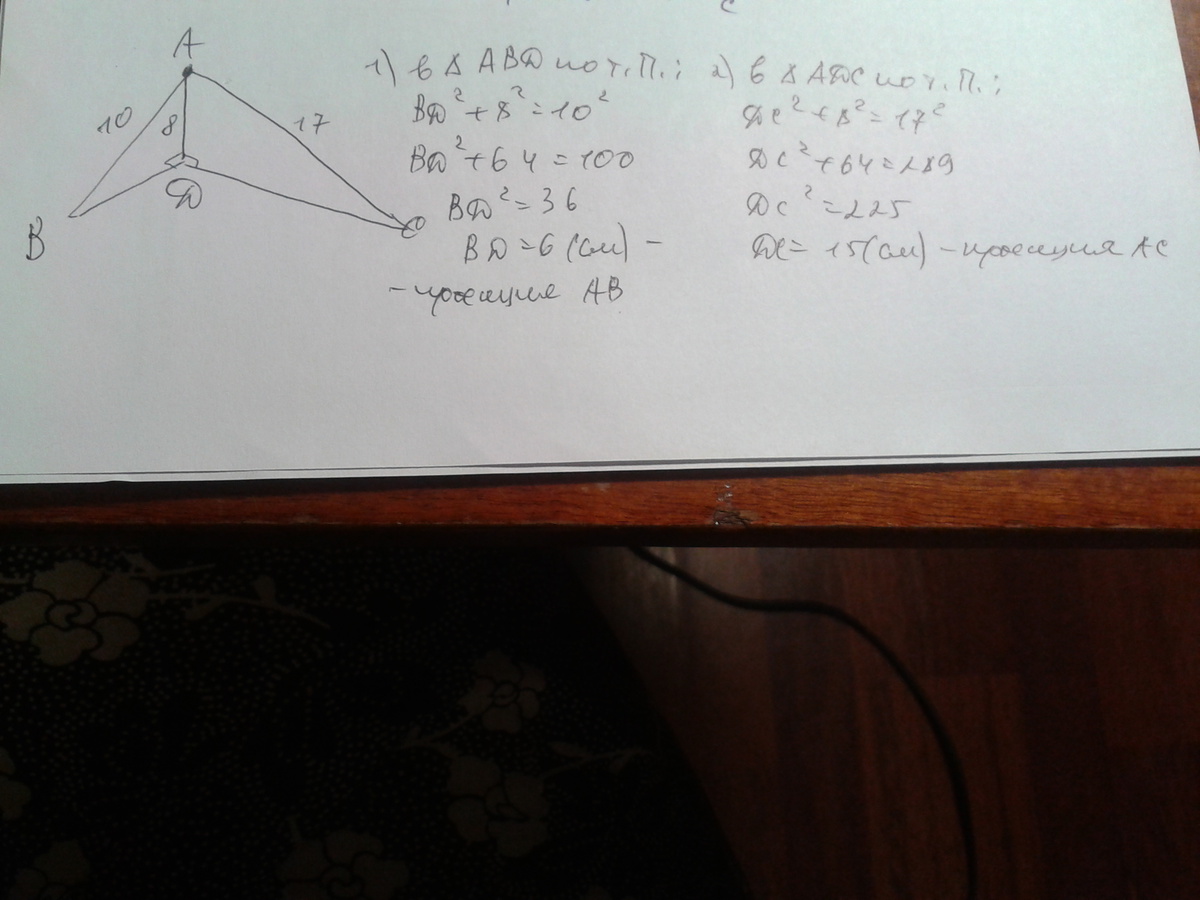 с
A
10
8
17
D
B
C
1) в Δ ABD по т. П.;
BD² + 8² = 10²
BD² + 64 = 100
BD² = 36
BD = 6 (см) –
– проекция AB
2) в Δ ADC по т. П.;
DC² + 8² = 17²
DC² + 64 = 289
DC² = 225
DC = 15 (см) – проекция AC